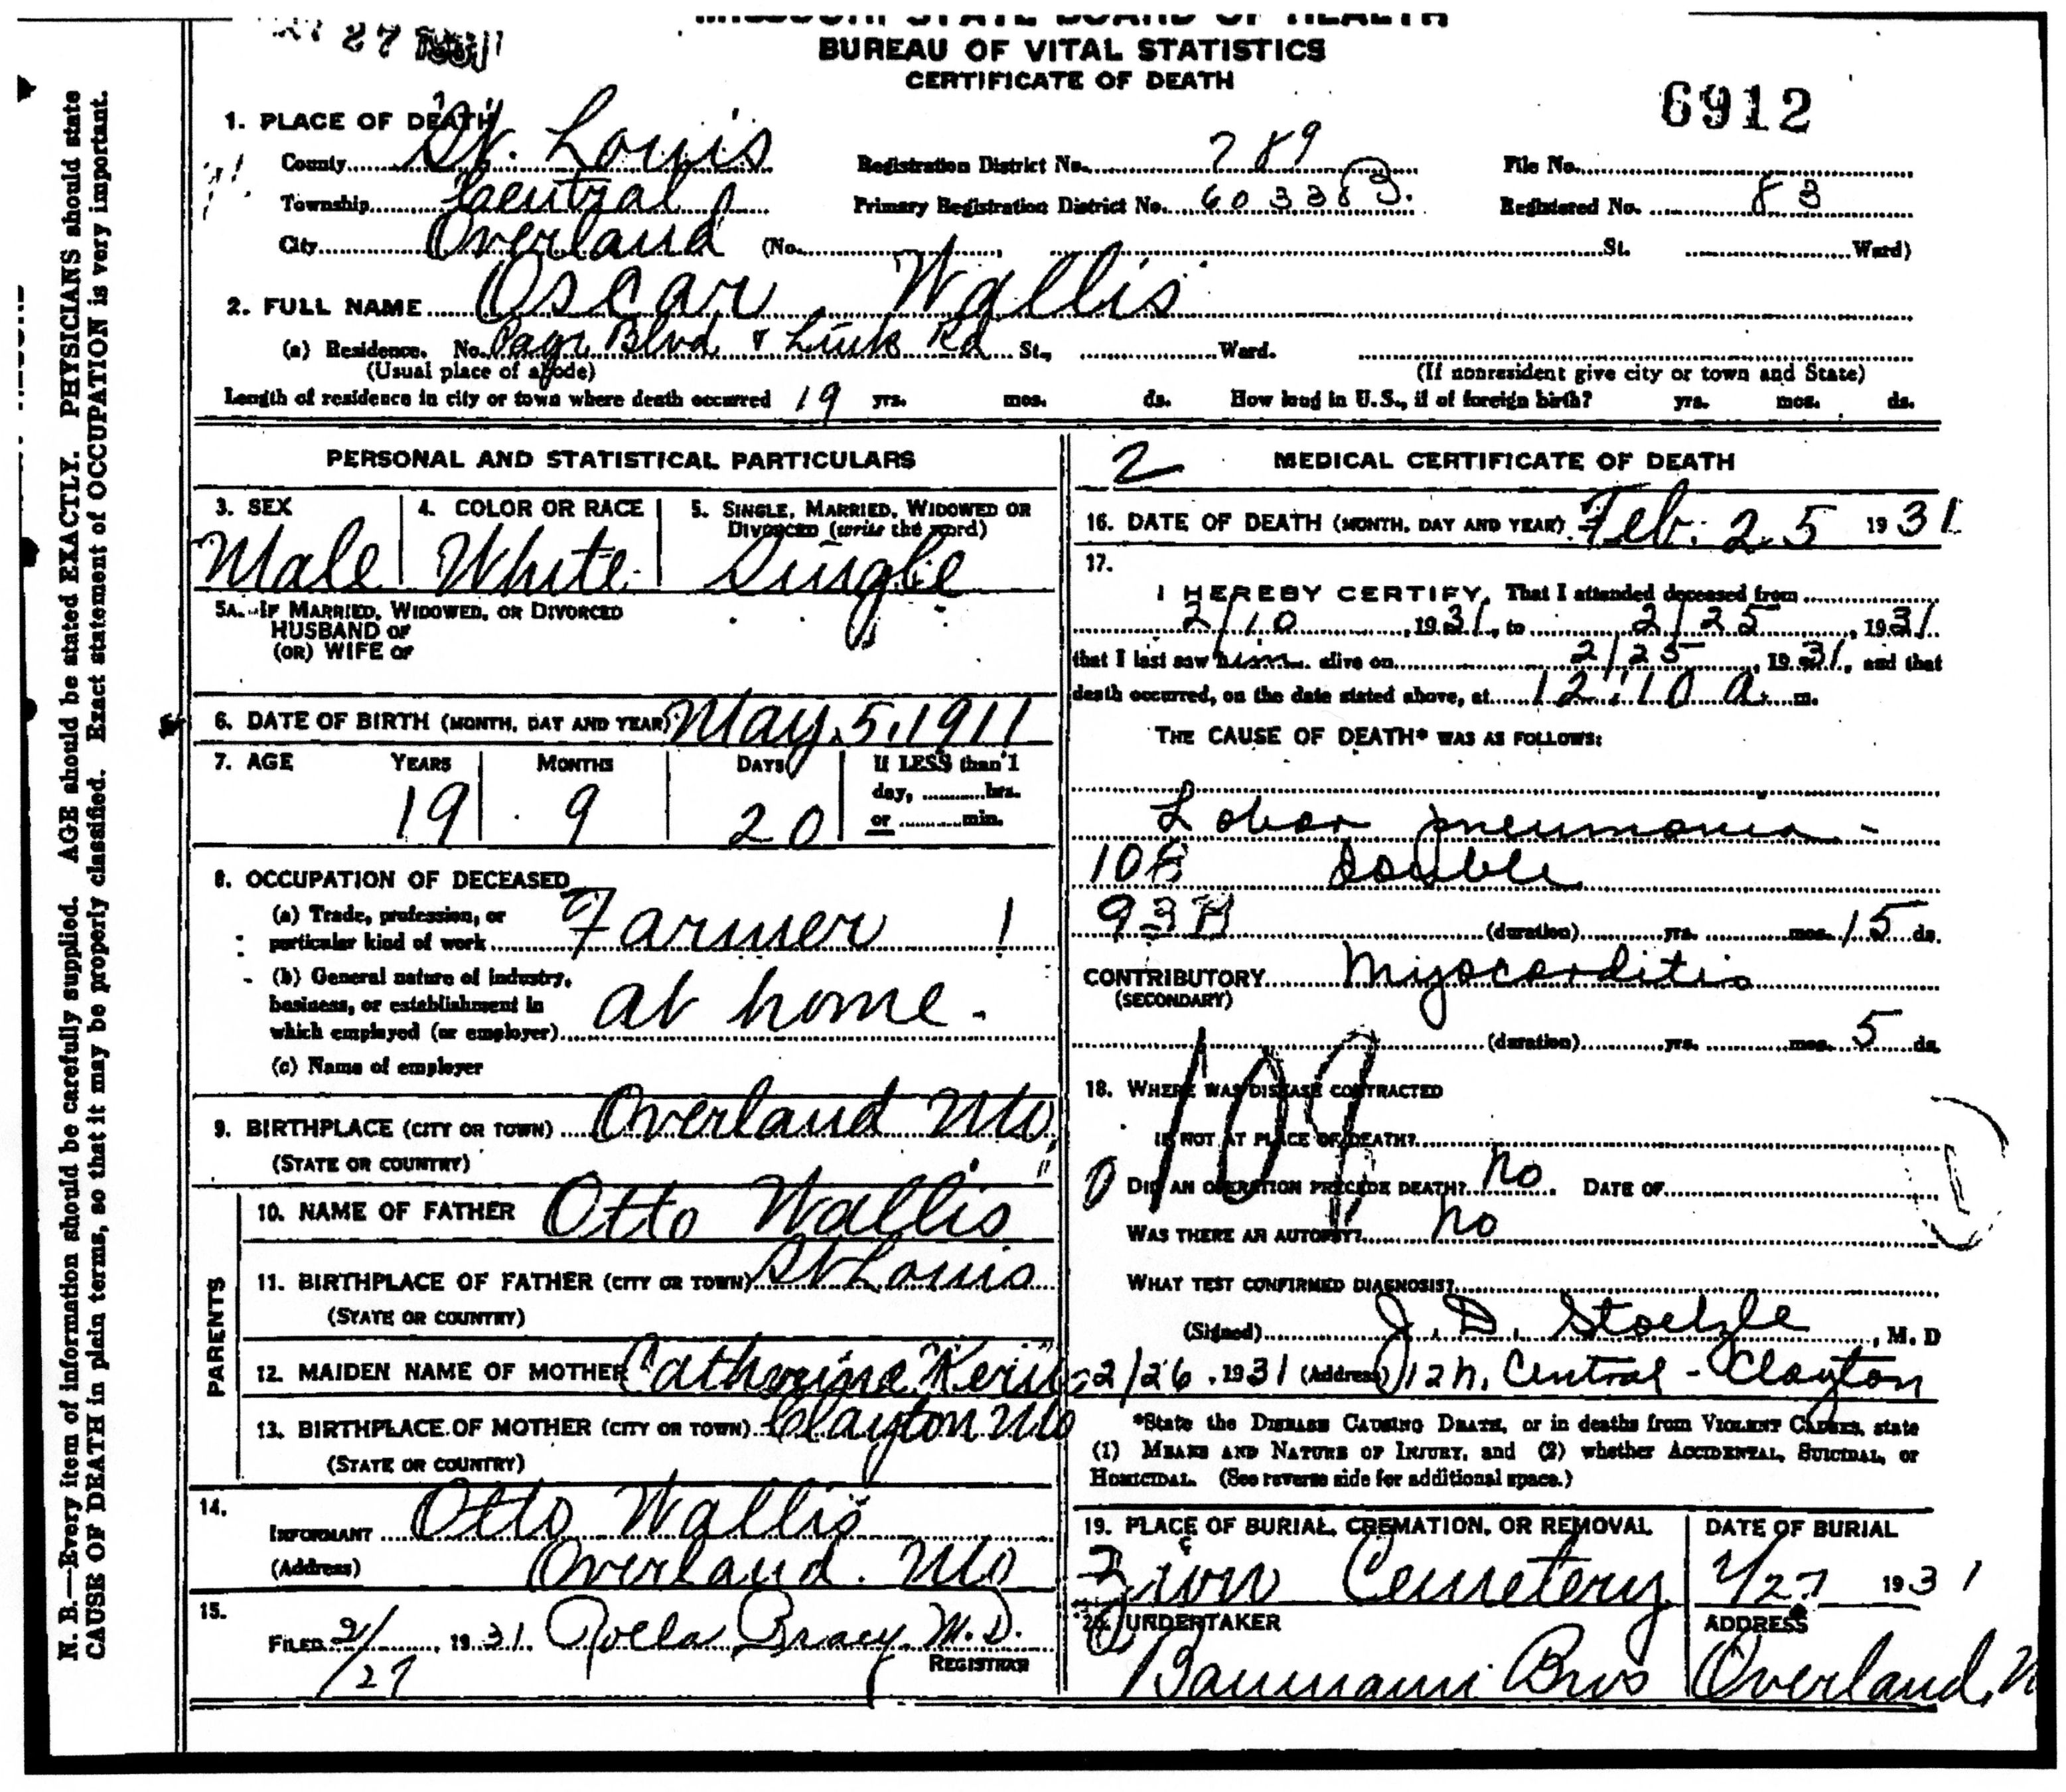 MISSOURI STATE BOARD OF HEALTH
27
BUREAU OF VITAL STATISTICS
CERTIFICATE OF DEATH
6912
1. PLACE OF DEATH
County St. Louis Registration District No. 789 File No.
Township Central Primary Registration District No. Registered No. 83
City Overland (No. , St. Ward)
2. FULL NAME Oscar Wallis
(a) Residence. No. Page Blvd & Link Rd St., Ward.
(Usual place of abode) (If nonresident give city or town and State)
Length of residence in city or town where death occurred 19 yrs. mos. ds. How long in U.S., if of foreign birth? yrs. mos. ds.
PERSONAL AND STATISTICAL PARTICULARS
3. SEX 4. COLOR OR RACE 5. SINGLE, MARRIED, WIDOWED OR
DIVORCED (write the word)
Male White Single
5A. IF MARRIED, WIDOWED, OR DIVORCED
HUSBAND OF
(OR) WIFE OF
6. DATE OF BIRTH (MONTH, DAY AND YEAR) May 5, 1911
7. AGE YEARS MONTHS DAYS If LESS than 1
day, hrs.
19 9 20 or min.
8. OCCUPATION OF DECEASED
(a) Trade, profession, or
particular kind of work Farmer 1
(b) General nature of industry,
business, or establishment in
which employed (or employer) at home.
(c) Name of employer
9. BIRTHPLACE (CITY OR TOWN) Overland Mo,
(STATE OR COUNTRY) "
PARENTS
10. NAME OF FATHER Otto Wallis
11. BIRTHPLACE OF FATHER (CITY OR TOWN) St Louis
(STATE OR COUNTRY)
12. MAIDEN NAME OF MOTHER Catherine
13. BIRTHPLACE OF MOTHER (CITY OR TOWN) Clayton Mo
(STATE OR COUNTRY)
14.
INFORMANT Otto Wallis
(Address) Overland. Mo
15.
FILED 2/27, 1931. Rolla Bracy M.D.
REGISTRAR
2 MEDICAL CERTIFICATE OF DEATH
16. DATE OF DEATH (MONTH, DAY AND YEAR) Feb. 25 1931
17.
I HEREBY CERTIFY, That I attended deceased from
2/10, 1931, to 2/25, 1931.
that I last saw him alive on 2/25, 1931, and that
death occurred, on the date stated above, at 12:10 a. m.
THE CAUSE OF DEATH* WAS AS FOLLOWS:
Lobar pneumonia -
108 double
93 (duration) yrs. mos. 15 ds.
CONTRIBUTORY Myocarditis
(SECONDARY)
(duration) yrs. mos. 5 ds.
18. WHERE WAS DISEASE CONTRACTED
IF NOT AT PLACE OF DEATH?
DID AN OPERATION PRECEDE DEATH? no. DATE OF
WAS THERE AN AUTOPSY? no
WHAT TEST CONFIRMED DIAGNOSIS?
(Signed) J. D. Stoelzle, M. D
2/26, 1931 (Address) 12 N. Central - Clayton
*State the DISEASE CAUSING DEATH, or in deaths from VIOLENT CAUSES, state
(1) MEANS AND NATURE OF INJURY, and (2) whether ACCIDENTAL, SUICIDAL, or
HOMICIDAL. (See reverse side for additional space.)
19. PLACE OF BURIAL, CREMATION, OR REMOVAL DATE OF BURIAL
Zion Cemetery 2/27 1931
20. UNDERTAKER ADDRESS
Baumann Bros Overland,
N. B.—Every item of information should be carefully supplied. AGE should be stated EXACTLY. PHYSICIANS should state
CAUSE OF DEATH in plain terms, so that it may be properly classified. Exact statement of OCCUPATION is very important.